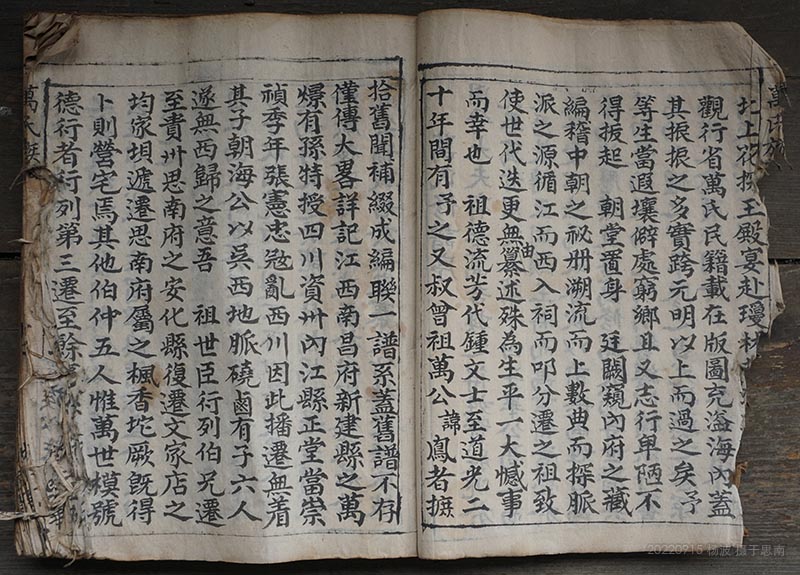 萬氏族
北上花撰王殿宴赴瓊林
觀行省萬氏民籍載在版圖充溢海內蓋
其振振之多實跨元明以上而過之矣予
等生當遐壤僻處窮鄉且又志行卑陋不
得扳起 朝堂置身 廷闕窺內府之藏
編稽中朝之祕冊溯流而上數典而探脈
派之源循江而西入祠而叩分遷之祖致
使世代迭更無由纂述殊為生平一大憾事
而幸也 祖德流芳代鍾文士至道光二
十年間有予之又叔曾祖萬公諱鳳者摭
拾舊聞補綴成編聯一譜系蓋舊譜不存
僅傳大畧詳記江西南昌府新建縣之萬
爃有孫特授四川資州內江縣正堂當崇
禎季年張憲忠冦亂西川因此播遷無着
其子朝海公以吳西地脈磽鹵有子六人
遂無西歸之意吾 祖世臣行列伯兄遷
至貴州思南府之安化縣復遷文家店之
均家垻遞遷思南府屬之楓香坨厥旣得
卜則營宅焉其他伯仲五人惟萬世模號
德行者行列第三遷至餘慶
萬氏族
20220915 杨波 摄于思南